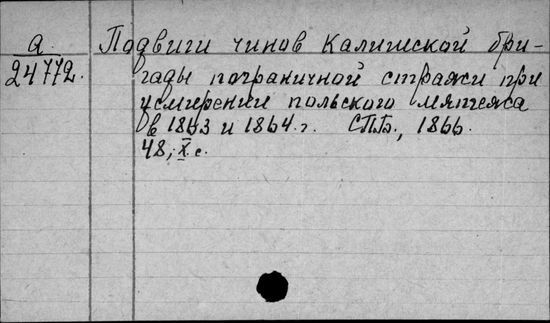 а
24772.
Подвиги чинов Калишской бри-
гады пограничной стражи при
усмирении польского мятежа
в 1863 и 1864 г. СПБ., 1866.
48, X с.